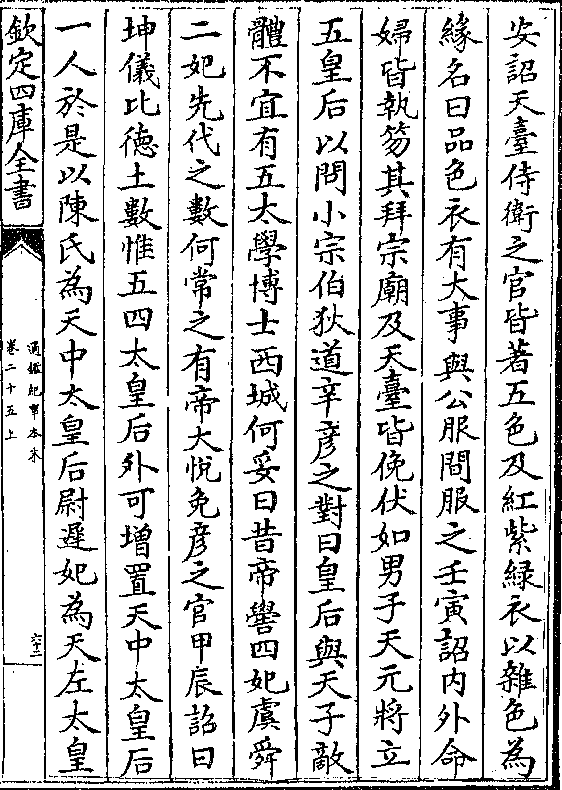 安詔天臺侍衛之官皆著五色及紅紫緑衣以雜色為
緣名曰品色衣有大事與公服間服之壬寅詔内外命
婦皆執笏其拜宗廟及天臺皆俛伏如男子天元將立
五皇后以問小宗伯狄道辛彦之對曰皇后與天子敵
體不宜有五太學博士西城何妥曰昔帝嚳四妃虞舜
二妃先代之數何常之有帝大悦免彦之官甲辰詔曰
坤儀比徳土數惟五四太皇后外可增置天中太皇后
一人於是以陳氏為天中太皇后尉遲妃為天左太皇
欽定四庫全書
通鑑紀事本末
卷二十五上
六十二